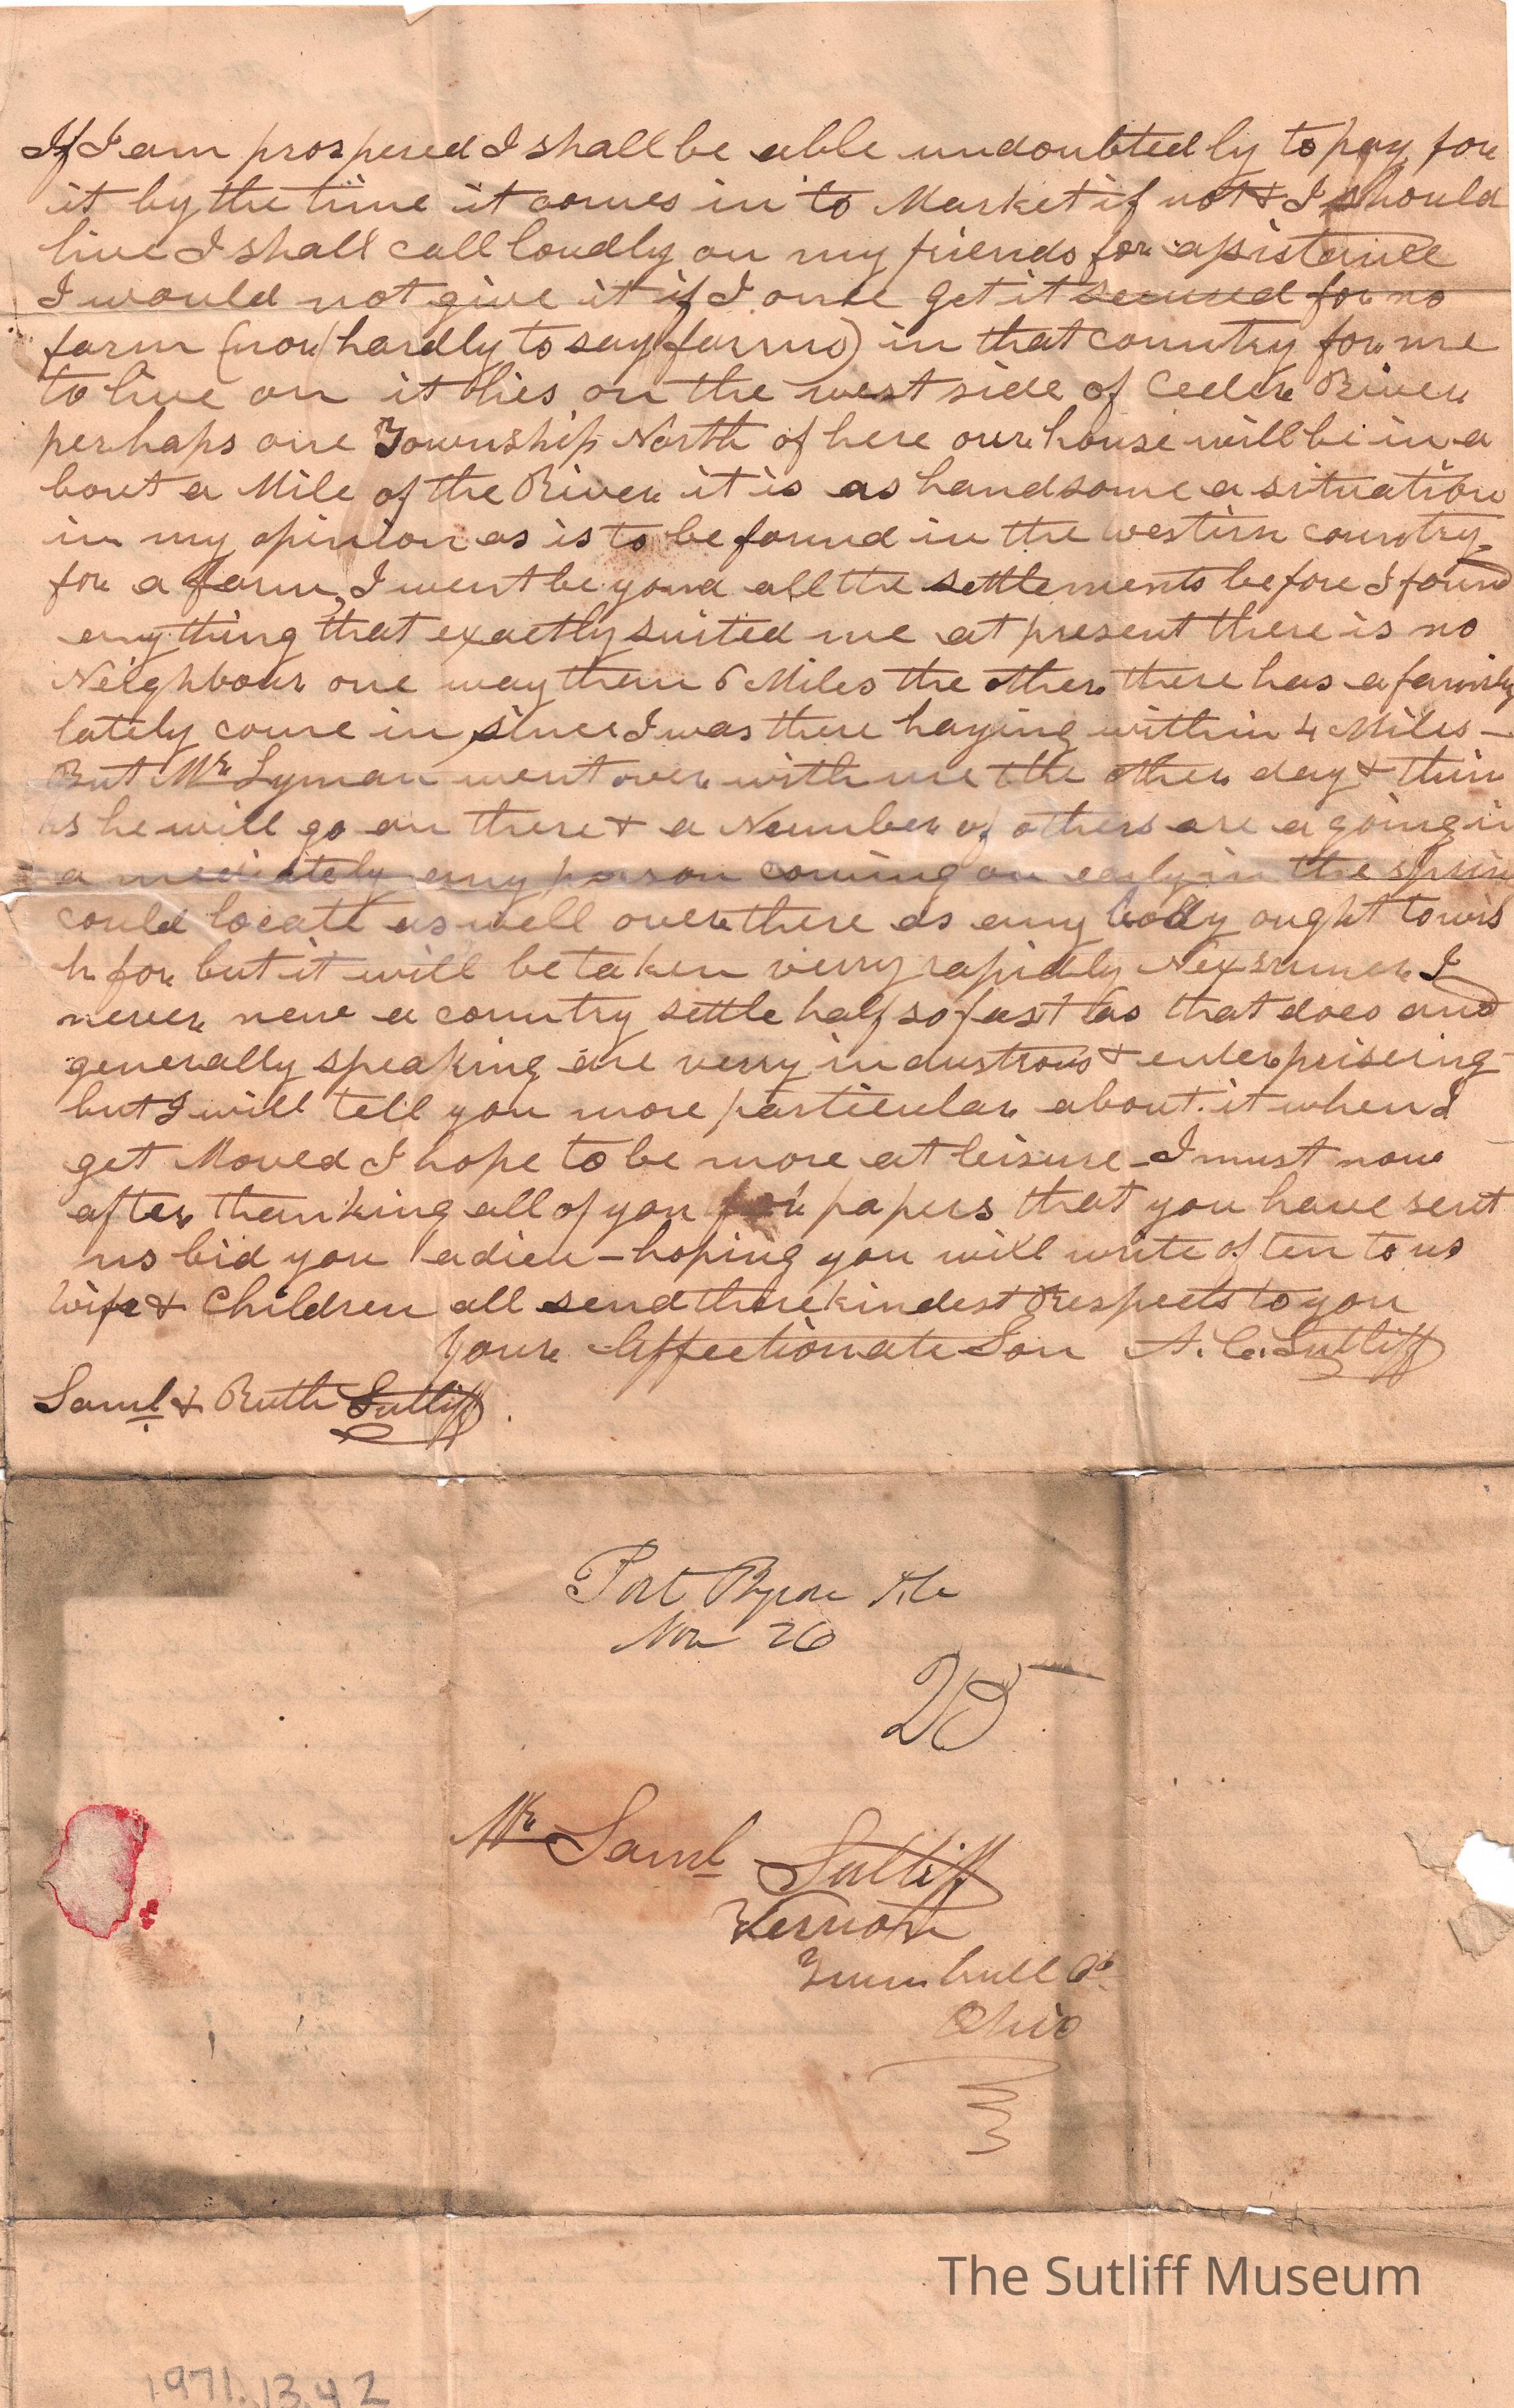 If I am prospered I shall be able undoubtedly to pay for
it by the time it comes in to Market if not & I should
live I shall call loudly on my friends for assistance
I would not give it if I once get it secured for no
farm (nor hardly to say farms) in that country for me
to live on it lies on the west side of Ceder River
perhaps one Township North of here our house will be in a
bout a Mile of the River it is as handsome a situation
in my opinion as is to be found in the western country
for a farm, I went beyond all the settlements before I found
anything that exactly suited me at present there is no
Neighbour one way then 6 Miles the other there has a family
lately come in since I was there haying within 4 Miles -
But Mr Lyman went over with me the other day & thin
ks he will go on there & a Number of others are a going in
a mediately any person coming on early in the sprin
could locate as well over there as any body ought to wis
h for but it will be taken verry rapidly Nex sumer I
never new a country settle half so fast as that does and
generally speaking are verry industrous & enterprisering -
but I will tell you more particular about it when I
get Moved I hope to be more at leisure - I must now
after thanking all of you for papers that you have sent
us bid you adieu - hoping you will write often to us
Wife & Children all send there kindest Respects to you
Your Affectionate Son A. C. Sutliff
Saml & Ruth Sutliff.
Port Byron Ills
Nov 26
25
Mr Saml Sutliff
Vernon
Trumbull Co.
Ohio
The Sutliff Museum
1971.13.42